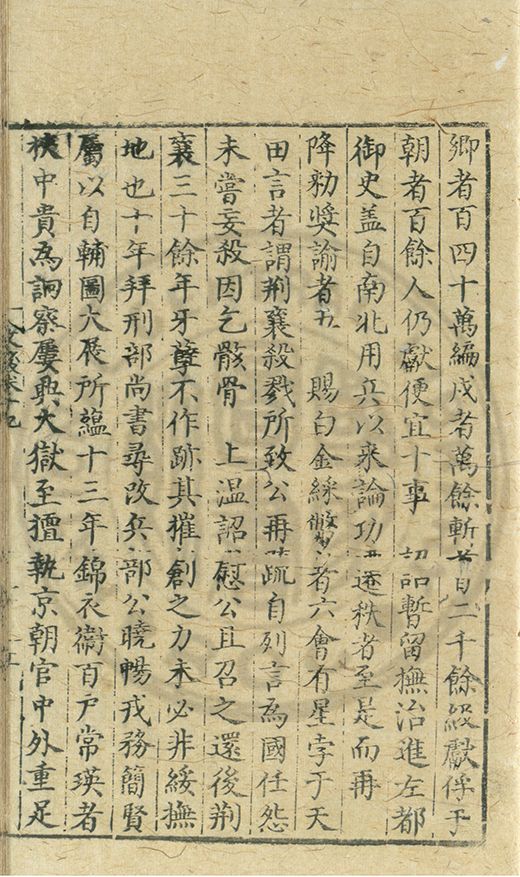 卿者百四十萬編戍者萬餘斬首二千餘級獻俘于
朝者百餘人仍獻便宜十事 詔暫留撫治進左都
御史盖自南北用兵以來論功遷秩者至是而再
降勑奬諭者五 賜白金綵幣者六會有星孛于天
田言者謂荆襄殺戮所致公再疏自列言為國任怨
未嘗妄殺因乞骸骨 上温詔慰公且召之還後荆
襄三十餘年牙孽不作跡其摧創之力未必非綏撫
地也十年拜刑部尚書尋改兵部公曉暢戎務簡賢
屬以自輔圖大展所蘊十三年錦衣衞百戶常瑛者
挾中貴為詗察屢興大獄至擅執京朝官中外重足